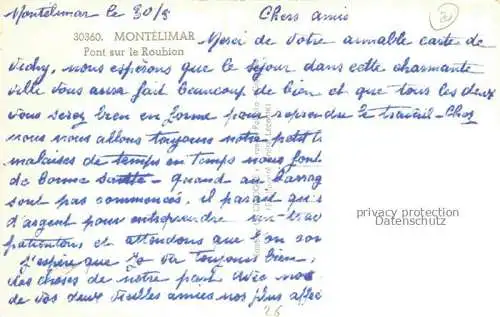 Montélimar le 30/8
Chers amis
30360. MONTÉLIMAR
Pont sur le Roubion
Merci de votre aimable carte de
Vichy, nous espérons que le séjour dans cette charmante
ville vous aura fait beaucoup de bien et que tous les deux
vous serez bien en forme pour reprendre le travail - Chez
nous nous allons toujours notre petit
malaises de temps en temps nous font
de bonne santé - quand au
sont pas commencés, il parait qu'
d'argent pour entreprendre
patientons et attendons que l'on
J'espère que va toujours bien,
des choses de notre part avec
de vos deux vieilles amies nos plus
privacy protection
Datenschutz
26